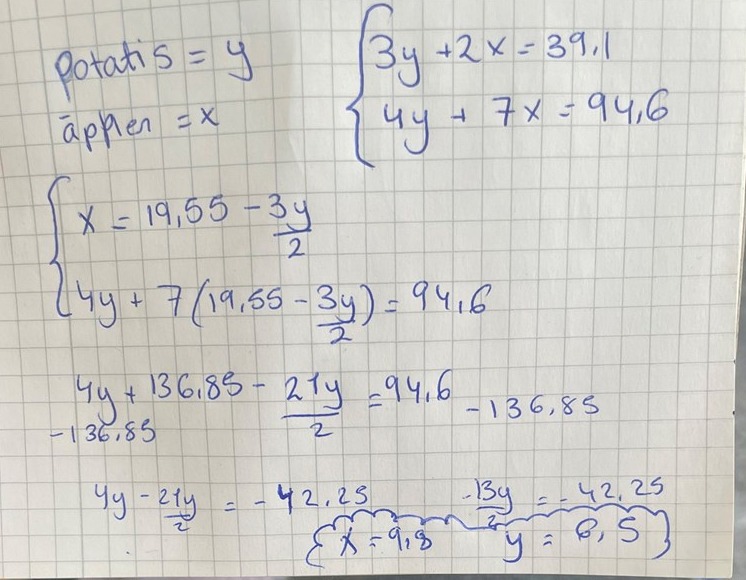 potatis = y
äpplen = x
3y + 2x = 39,1
4y + 7x = 94,6
x = 19,55 - 3y/2
4y + 7(19,55 - 3y/2) = 94,6
4y + 136,85 - 21y/2 = 94,6 - 136,85
-136,85
4y - 21y/2 = -42,25 -13y/2 = -42,25
x = 9,8 y = 6,5